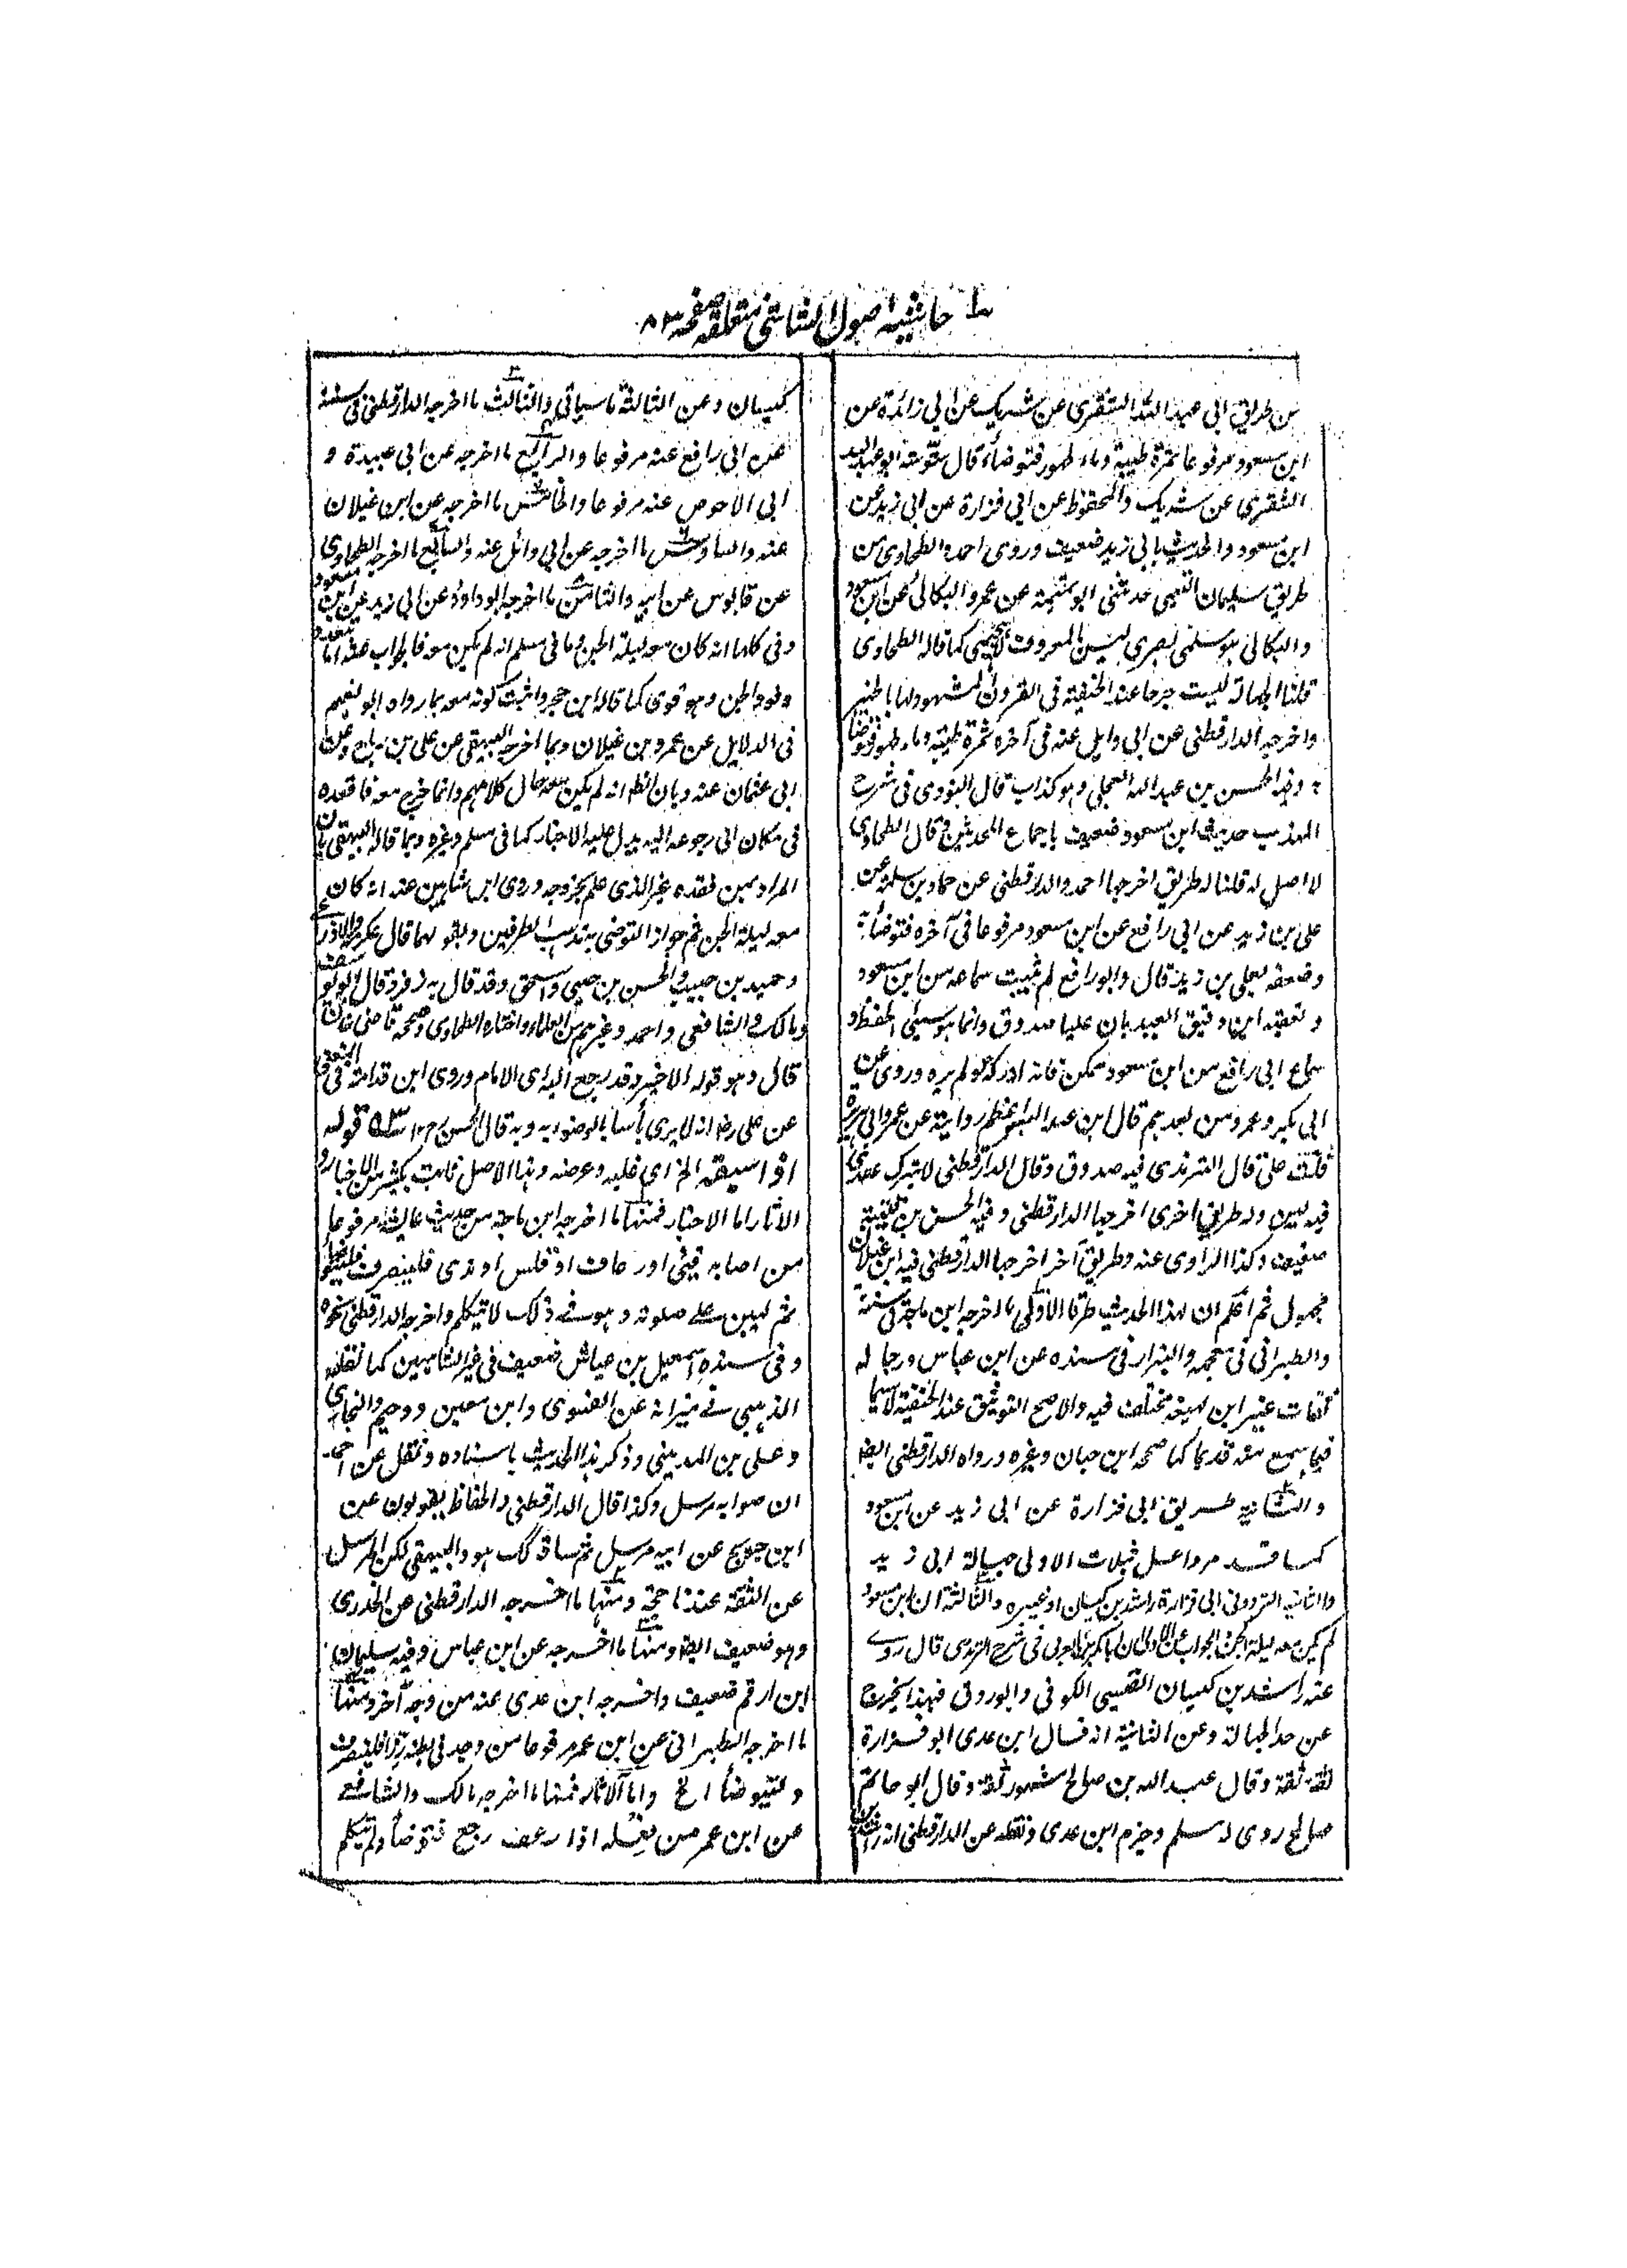 حاشيه اصول الشاشي متعلقه صفحه ٨٣
من طريق ابى عبد الله الشقرى عن شريك عن ابى زائدة عن
ابن مسعود مرفوعا ثمرة طيبة وماء طهور فتوضأ قال تفرد به ابو عبد الله
الشقرى عن شريك والمحفوظ عن ابى فزارة عن ابى زيد عن
ابن مسعود والحديث بابى زيد ضعيف وروى احمد والطحاوى من
طريق سليمان التيمى حدثنى ابو تميمة عن عمرو البكالى عن ابن مسعود
والبكالى هو سلمى بصرى ليس بالمعروف كما قاله الطحاوى
قلنا الجهالة ليست جرحا عند الحنفية فى القرون المشهود لها بالخير
واخرجه الدارقطنى عن ابى وايل عنه فى آخره ثمرة طيبة وماء طهور فتوضأ
به وفيه الحسن بن عبيد الله العجلى وهو كذاب قال النووى فى شرح
المهذب حديث ابن مسعود ضعيف باجماع المحدثين وقال الطحاوى
لا اصل له قلنا له طريق اخرجها احمد والدارقطنى عن حماد بن سلمة عن
على بن زيد عن ابى رافع عن ابن مسعود مرفوعا فى آخره فتوضأ به
وضعفه بعلى بن زيد قال وابو رافع لم يثبت سماعه من ابن مسعود
وتعقبه ابن دقيق العيد بان عليا صدوق وانما هو سيئ الحفظ و
سماع ابى رافع من ابن مسعود ممكن فانه ادركه ولو لم يره وروى عن
ابى بكر وعمر ومن بعدهم قال ابن عبد البر عظم رواية عن عمر وابى هريرة
قلت على قال الترمذى فيه صدوق وقال الدارقطنى لا يترك عندى
فيه لين وله طريق اخرى اخرجها الدارقطنى وفيه الحسن بن قتيبة
ضعيف وكذا الراوى عنه وطريق آخر اخرجها الدارقطنى فيه ابن غيلان
مجهول ثم اعلم ان لهذا الحديث طرقا الاولى ما اخرجه ابن ماجة فى سننه
والطبرانى فى معجمه والبزار فى مسنده عن ابن عباس ورجاله
ثقات غير ابن لهيعة مختلف فيه والاصح التوثيق عند الحنفية لا سيما
فيما سمع منه قديما كما صححه ابن حبان وغيره ورواه الدارقطنى ايضا
والثانية طريق ابى فزارة عن ابى زيد عن ابن مسعود
كما قد مر واعل بثلاث الاولى جهالة ابى زيد
والثانية التردد فى ابى فزارة راشد بن كيسان او غيره والثالثة ان ابن مسعود
لم يكن معه ليلة الجن والجواب عن الاولى ان ابا بكر بن العربى فى شرح الترمذى قال روى
عنه راشد بن كيسان العبسى الكوفى وابو روق فبهذا يخرج
عن حد الجهالة وعن الثانية انه قال ابن عدى ابو فزارة
ثقة ثقة وقال عبد الله بن صالح مشهور ثقة وقال ابو حاتم
صالح روى له مسلم وجزم ابن عدى ونقله عن الدارقطنى انه راشد بن
كيسان وعن الثالثة ما سيأتى والثالث ما اخرجه الدارقطنى فى سننه
عن ابى رافع عنه مرفوعا والرابع ما اخرجه عن ابى عبيدة و
ابى الاحوص عنه مرفوعا والخامس ما اخرجه عن ابن غيلان
عنه والسادس ما اخرجه عن ابى وائل عنه والسابع ما اخرجه الطحاوى
عن قابوس عن ابيه والثامن ما اخرجه ابو داود عن ابى زيد عن ابن مسعود
وفى كلها انه كان معه ليلة الجن وما فى مسلم انه لم يكن معه فالجواب عنه
وفود الجن وهو قوى كما قاله ابن حجر واثبت كونه معه بما رواه ابو نعيم
فى الدلايل عن عمرو بن غيلان وبما اخرجه البيهقى عن على بن رباح وعن
ابى عثمان عنه وبان انه لم يكن معه حال كلامهم وانما خرج معه فاقعده
فى مكان الى رجوعه اليه يدل عليه الاخبار كما فى مسلم وغيره وبما قاله البيهقى بان
المراد بمن فقده غير الذى علم بخروجه وروى ابن شاهين عنه انه كان
معه ليلة الجن ثم جواز التوضى به مذهب الطرفين وبقولهما قال عكرمة والاوزاعى
وحميد بن حبيب والحسن بن حيى واسحق وقد قال به زفر وقال ابو يوسف
ومالك والشافعى واحمد وغيرهم من العلماء واختاره الطحاوى وصححه قاضى خان
قال وهو قوله الاخير وقد رجع اليه اى الامام وروى ابن قدامة فى المغنى
عن على رض انه لا يرى بأسا بالوضوء به وبه قال الحسن قوله
اذا سبقه الخ اى غلبه وعرضه وهذا الاصل ثابت بكثير من الاخبار و
الآثار اما الاخبار فمنها ما اخرجه ابن ماجة من حديث عائشة مرفوعا
من اصابه قيئى او رعاف او قلس او مذى فلينصرف فليتوضأ
ثم ليبن على صلوته وهو فى ذلك لا يتكلم واخرجه الدارقطنى نحوه
وفى سنده اسمعيل بن عياش ضعيف فى غير الشاميين كما نقله
الذهبى فى ميزانه عن الفسوى وابن معين ودحيم والبخارى
وعلى بن المدينى وذكر هذا الحديث باسناده ونقل عن احمد
ان صوابه مرسل وكذا قال الدارقطنى والحفاظ يقولون عن
ابن جريج عن ابيه مرسل ثم ساق كك هو والبيهقى لكن المرسل
عن الثقة عندنا حجة ومنها ما اخرجه الدارقطنى عن الخدرى
وهو ضعيف ايضا ومنها ما اخرجه عن ابن عباس وفيه سليمان
ابن ارقم ضعيف واخرجه ابن عدى عنه من وجه آخر ومنها
ما اخرجه الطبرانى عن ابن عمر مرفوعا من وجد فى بطنه رزا فلينصرف
وليتوضأ الخ واما الآثار فمنها ما اخرجه مالك والشافعى
عن ابن عمر من فعله اذا رعف رجع فتوضأ ولم يتكلم